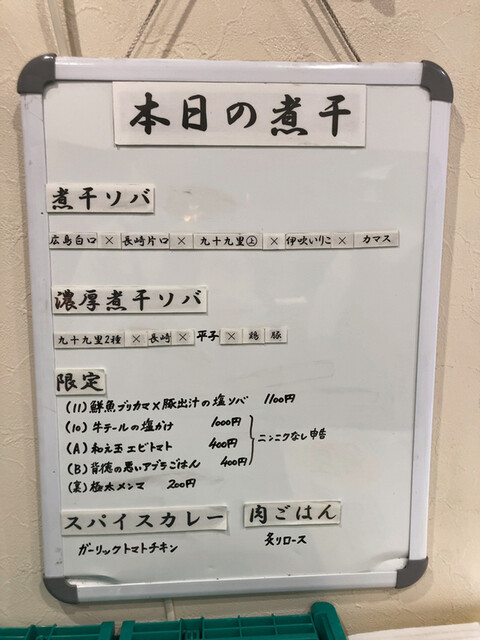 本日の煮干
煮干ソバ
広島白口 × 長崎片口 × 九十九里㊤ × 伊吹いりこ × カマス
濃厚煮干ソバ
九十九里2種 × 長崎 × 平子 × 鶏 豚
限定
(11) 鮮魚ブリカマ×豚出汁の塩ソバ 1100円
(10) 牛テールの塩かけ 1000円
(A) 和え玉エビトマト 400円
ニンニクなし申告
(B) 背徳の悪いアブラごはん 400円
(裏) 極太メンマ 200円
スパイスカレー 肉ごはん
ガーリックトマトチキン 炙りロース